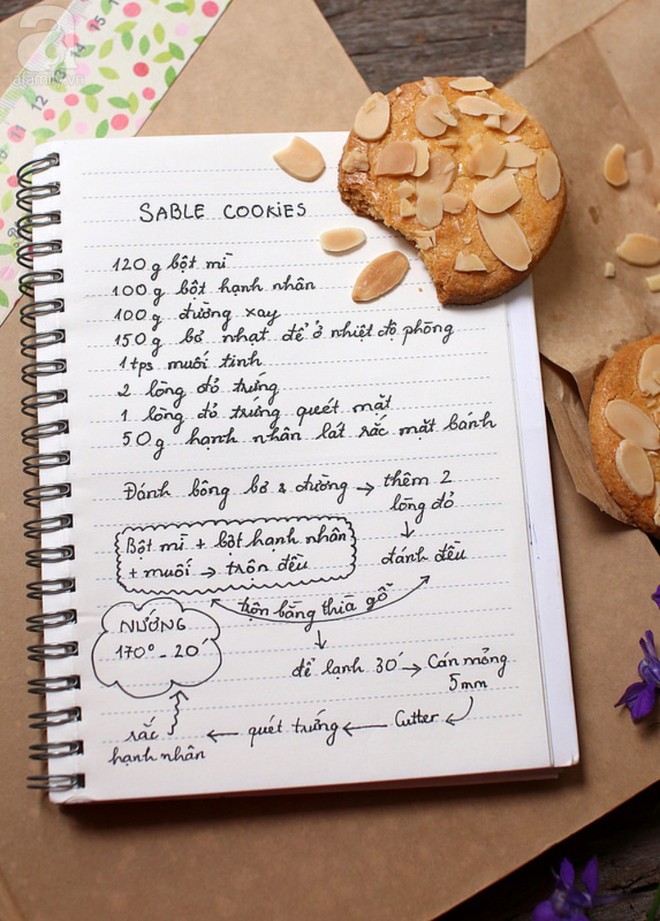 afamily.vn
SABLE COOKIES
120g bột mì
100g bột hạnh nhân
100g đường xay
150g bơ nhạt để ở nhiệt độ phòng
1tps muối tinh
2 lòng đỏ trứng
1 lòng đỏ trứng quét mặt
50g hạnh nhân lát rắc mặt bánh
Đánh bông bơ & đường → thêm 2
lòng đỏ
↓
đánh đều
Bột mì + bột hạnh nhân
+ muối → trộn đều
trộn bằng thìa gỗ
↓
để lạnh 30' → Cán mỏng
5mm
Cutter
← quét trứng ←
rắc
hạnh nhân
NƯỚNG
170° - 20'